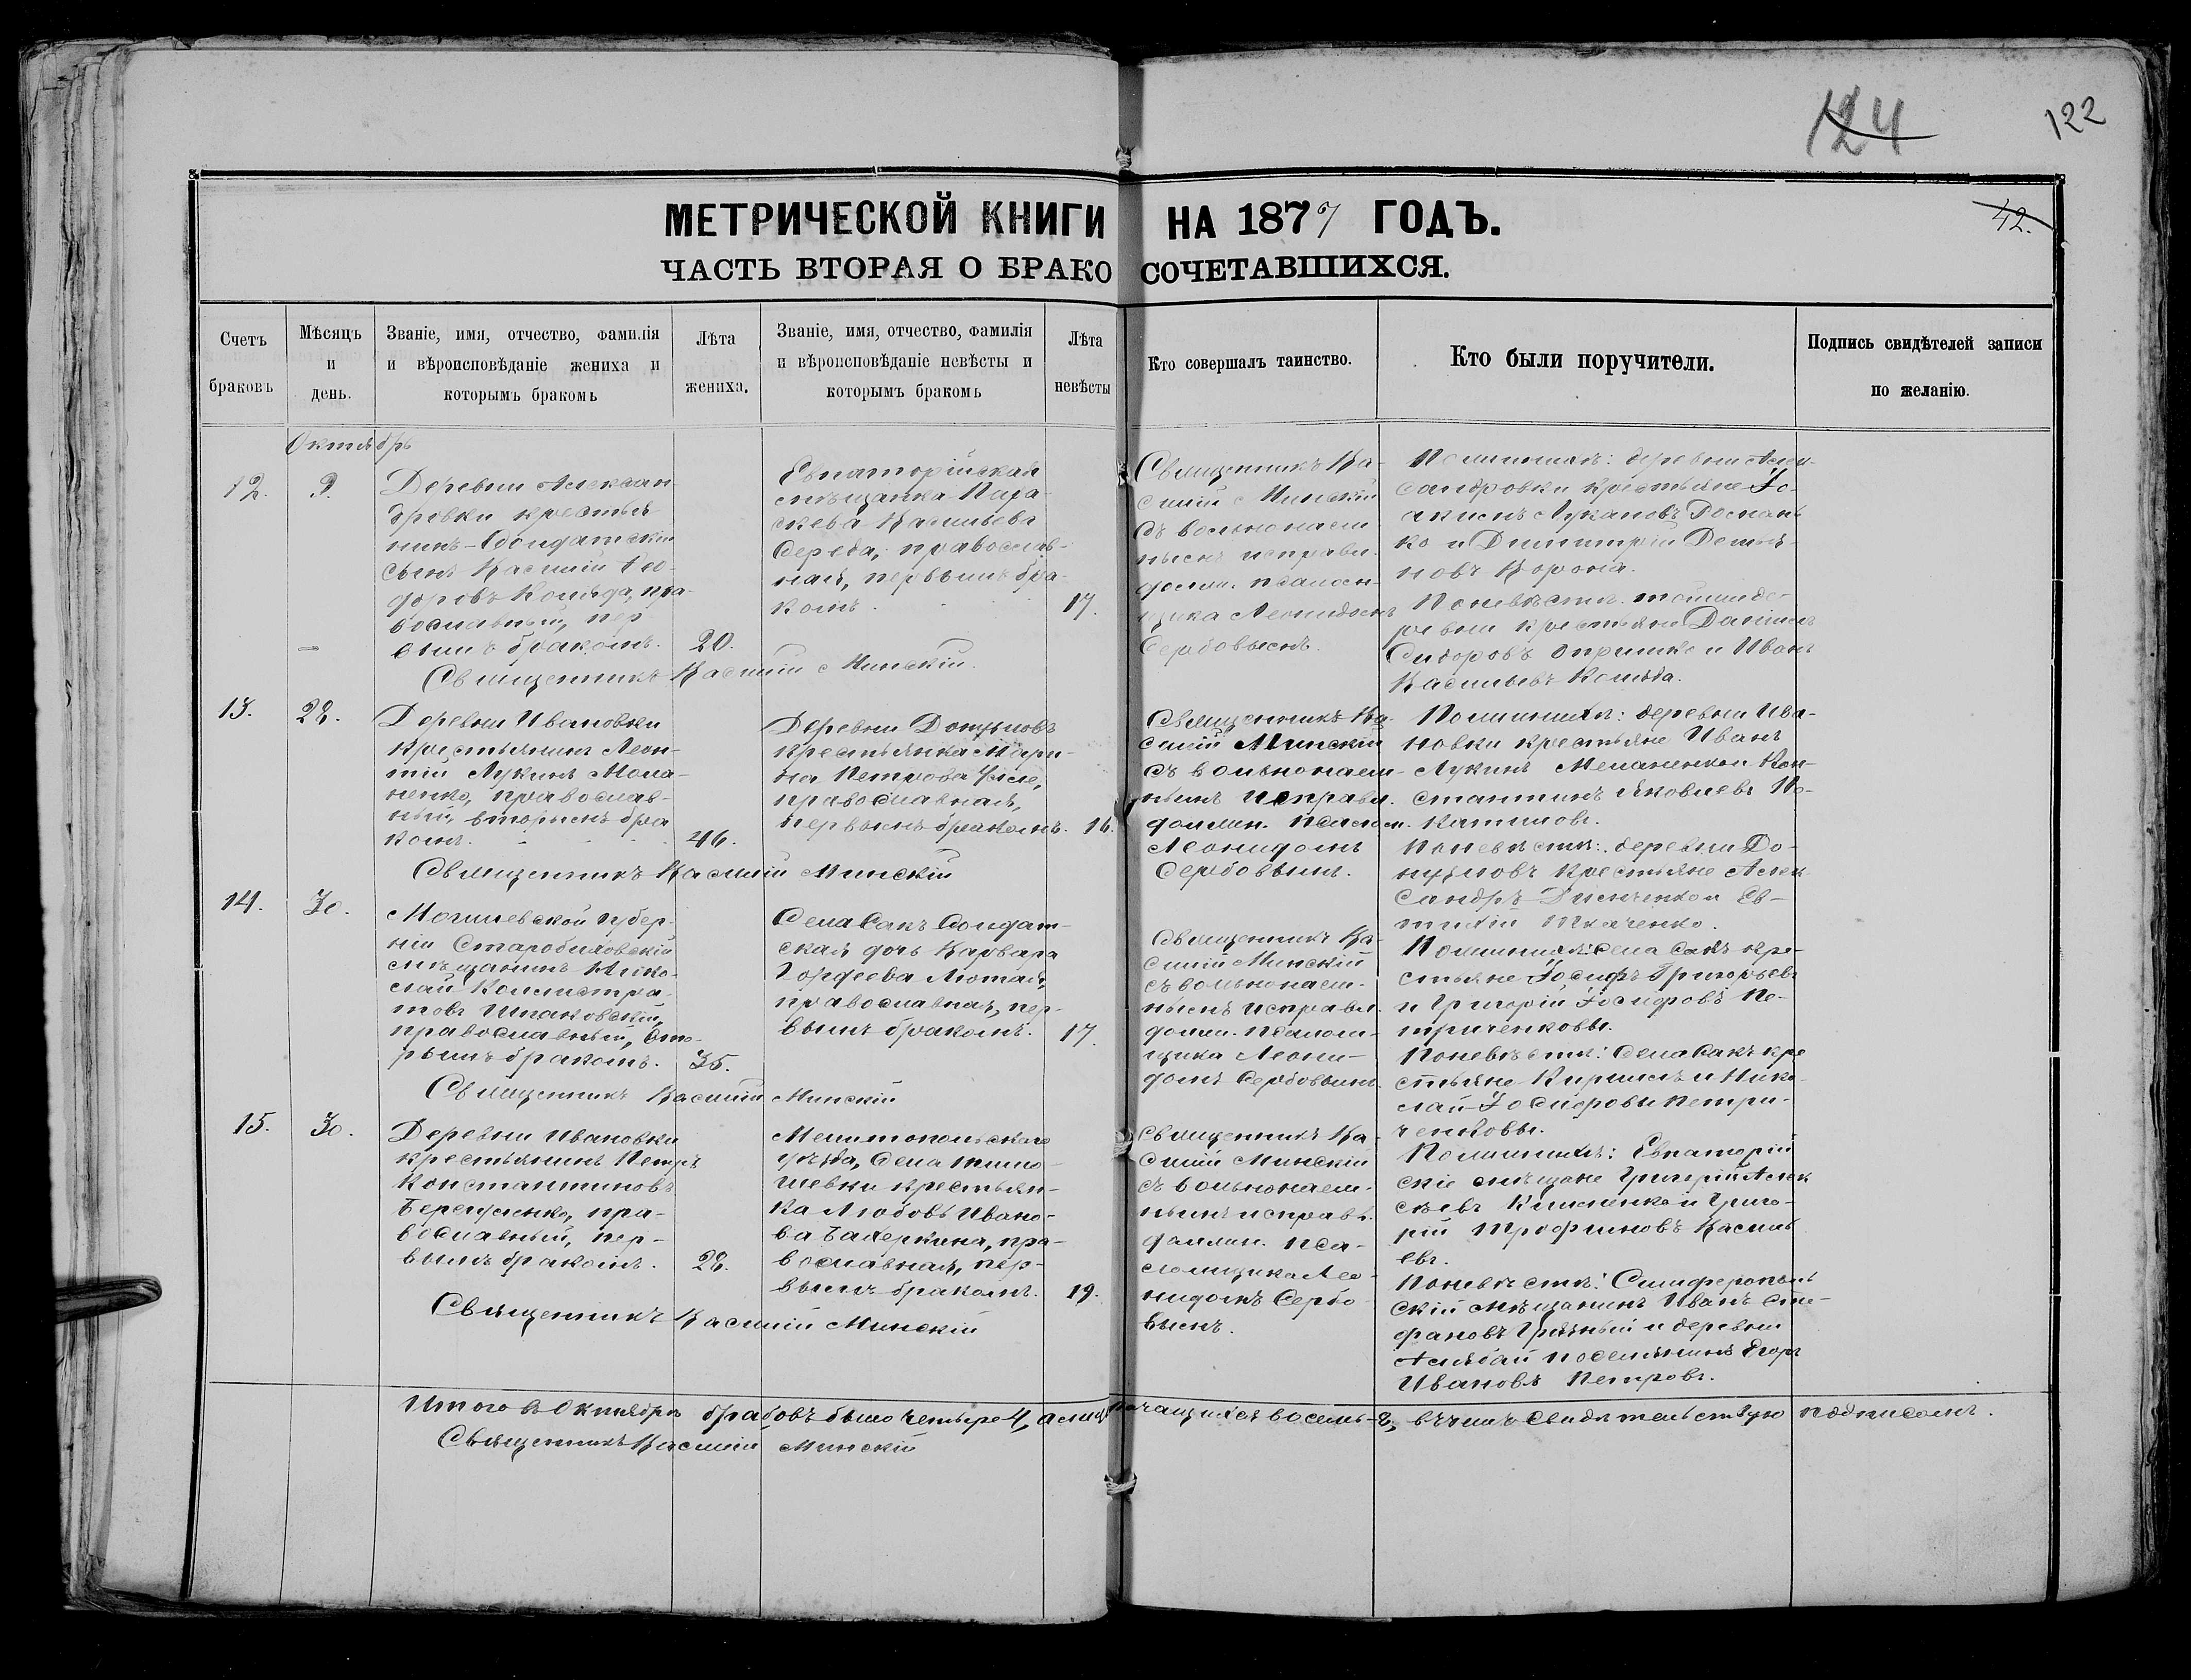 124
122
42.
МЕТРИЧЕСКОЙ КНИГИ НА 1877 ГОДЪ.
ЧАСТЬ ВТОРАЯ О БРАКОСОЧЕТАВШИХСЯ.
Счетъ
браковъ
Мѣсяцъ
и
день.
Званіе, имя, отчество, фамилія
и вѣроисповѣданіе жениха и
которымъ бракомъ
Лѣта
жениха.
Званіе, имя, отчество, фамилія
и вѣроисповѣданіе невѣсты и
которымъ бракомъ
Лѣта
невѣсты
Кто совершалъ таинство.
Кто были поручители.
Подпись свидѣтелей записи
по желанію.
Октябрь
12.
9.
Деревни Алексан-
дровки крестья-
нинъ-Солдатскій
сынъ Василій Ѳео-
доровъ Коляда, пра-
вославный, пер
вымъ бракомъ.
20.
Евпаторійская
мѣщанка
Васильева
Середа, православ-
ная, первымъ бра-
комъ.
17.
Священникъ Ва-
силій Минскій
съ вольнонаем
нымъ исправл.
должн. псаломщика
Леонидомъ
Сербовымъ.
По женихѣ: деревни Алек-
сандровки крестьяне Іо-
акимъ Лукановъ
и Димитрій Демья-
новъ Ворона.
По невѣстѣ: той же де-
ревни крестьяне Даніилъ
Сидоровъ Опришко и Иванъ
Васильевъ Коляда.
Священникъ Василій Минскій.
13.
22.
Деревни Ивановки
крестьянинъ Леон-
тій Лукинъ Мела-
ненко, православ-
ный, вторымъ бра
комъ.
46.
Деревни
крестьянка Мари-
на Петрова
православная,
первымъ бракомъ.
16.
Священникъ Ва-
силій Минскій
съ вольнонаем-
нымъ исправл.
должн. псалом.
Леонидомъ
Сербовымъ.
По женихѣ: деревни Ива-
новки крестьяне Иванъ
Лукинъ Меланенко и Кон-
стантинъ Яковлевъ
По невѣстѣ: деревни
крестьяне Алек-
сандръ и Ев-
тихій Ткаченко.
Священникъ Василій Минскій
14.
30.
Могилевской губер-
ніи Старобыховскій
мѣщанинъ Нико-
лай Калистра-
товъ
православный, вто-
рымъ бракомъ.
35.
Села Сакъ Солдат-
ская дочь Варвара
Гордеева Лютая,
православная, пер-
вымъ бракомъ.
17.
Священникъ Ва-
силій Минскій
съ вольнонаем-
нымъ исправл.
должн. псалом-
щика Леони-
домъ Сербовымъ.
По женихѣ: села Сакъ кре-
стьяне Іосифъ Григорьевъ
и Григорій Іосифовъ Пе-
триченковы.
По невѣстѣ: Села Сакъ кре
стьяне Кириллъ и Нико
лай Іосифовы Петри-
ченковы.
Священникъ Василій Минскій
15.
30.
Деревни Ивановки
крестьянинъ Петръ
Константиновъ
пра-
вославный, пер-
вымъ бракомъ.
22.
Мелитопольскаго
уѣзда, Села Тимо-
шевки крестьян-
ка Любовь Ивано-
ва пра-
вославная, пер-
вымъ бракомъ.
19.
Священникъ Ва-
силій Минскій
съ вольнонаем.
нымъ исправл.
должн. Пса-
ломщика Лео-
нидомъ Сербо-
вымъ.
По женихѣ: Евпаторій
скіе мѣщане Григорій Алек
сѣевъ Клименко и Григо-
рій Трофимовъ Василь
евъ.
По невѣстѣ: Симферополь
скій мѣщанинъ Иванъ Сте-
фановъ и деревни
поселянинъ Егоръ
Ивановъ Петровъ.
Священникъ Василій Минскій
Итого въ Октябрѣ браковъ было четыре 4, а сочетающихся восемь-8, въ чемъ свидѣтельствую подписомъ.
Священникъ Василій Минскій